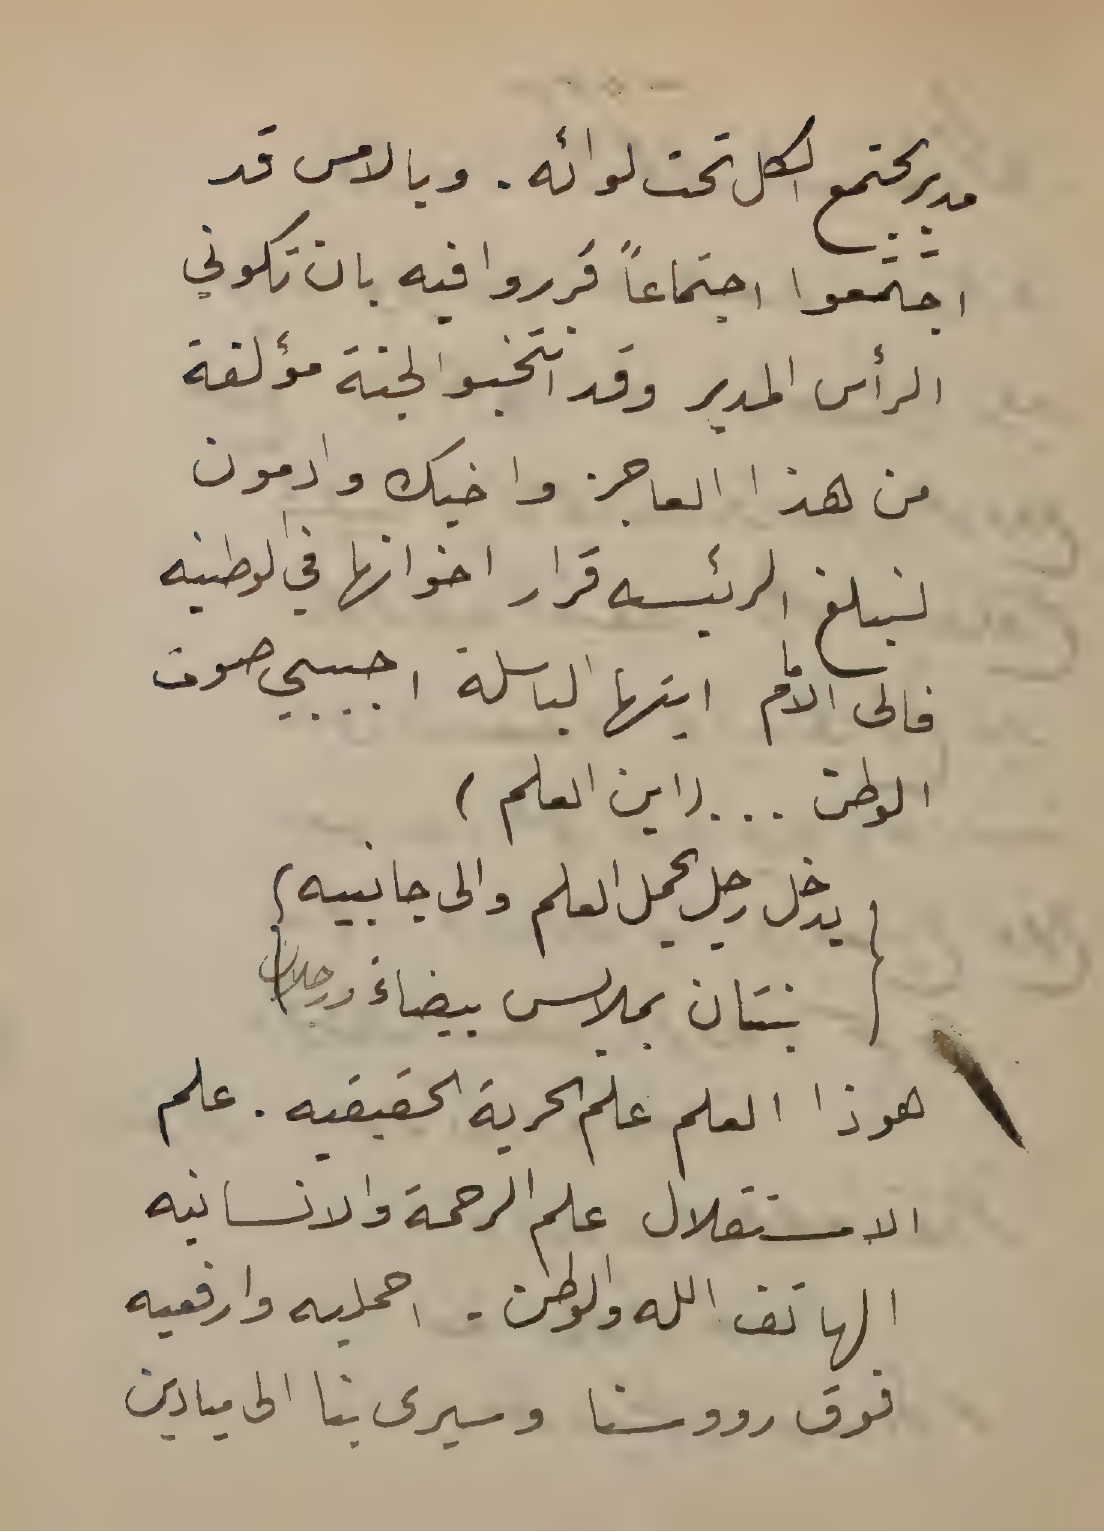 مدير يجتمع الكل تحت لوائه . وبالامس قد
اجتمعوا اجتماعاً قرروا فيه بان تكوني
الرأس المدير وقد انتخبوا لجنة مؤلفة
من هذا العاجز واخيك وادمون
لنبلغ الرئيسه قرار اخوانها في الوطنيه
فالى الأمام ايتها الباسلة اجيبي صوت
الوطن . . . (اين العلم )
يدخل رجل يحمل العلم والى جانبيه)
بنتان بملابس بيضاء ورجلان
هوذا العلم علم الحرية الحقيقيه . علم
الاستقلال علم الرحمة والانسانيه
الهاتف الله والوطن - احمليه وارفعيه
فوق رووسنا وسيرى بنا الى ميادين